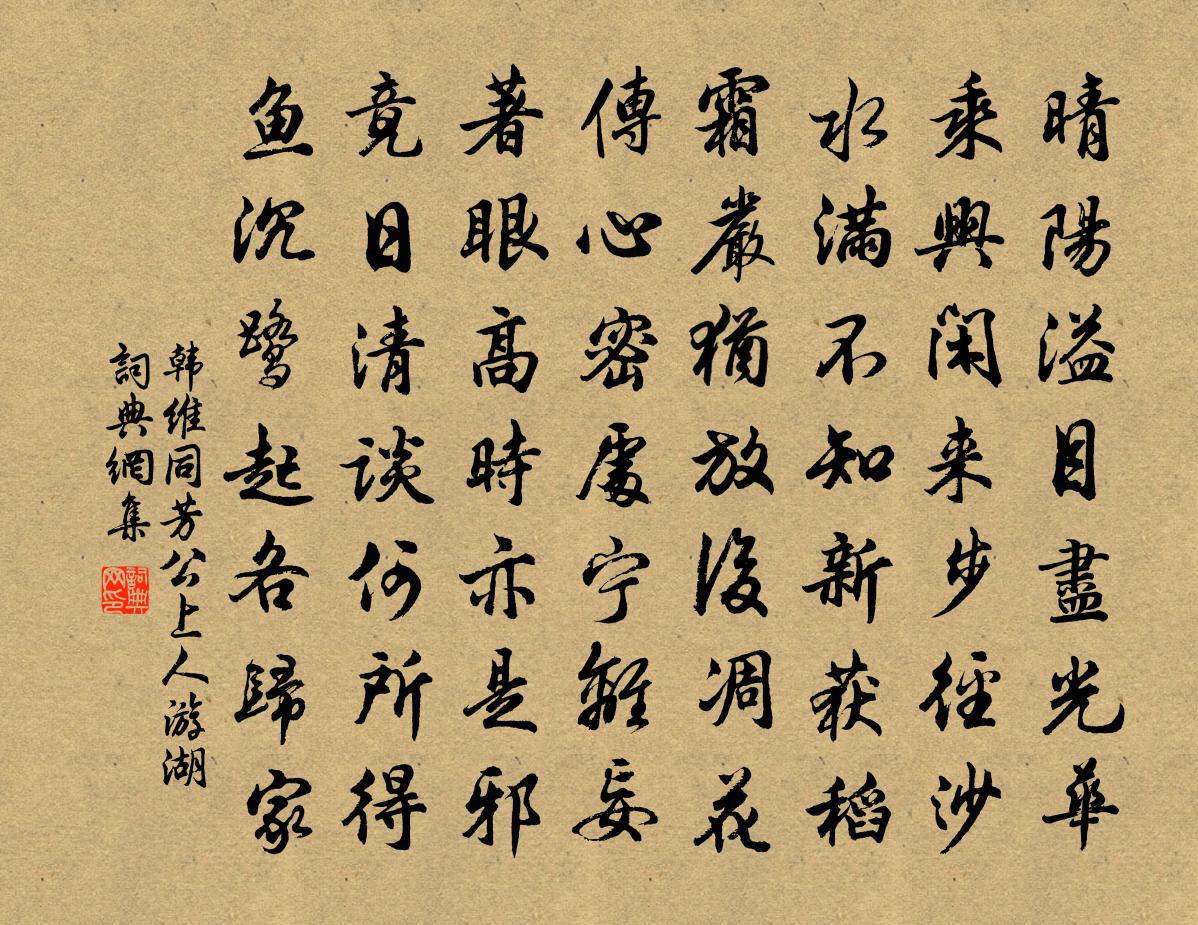 晴陽溢目盡光華
乘興閑来步徑沙
水满不知新获稻
霜嚴猶放後凋花
傳心密處宁離妄
著眼高時亦是邪
竟日清談何所得
鱼沉鹭起各歸家
韩维同芳公上人游湖
詞典網集
詞典网印